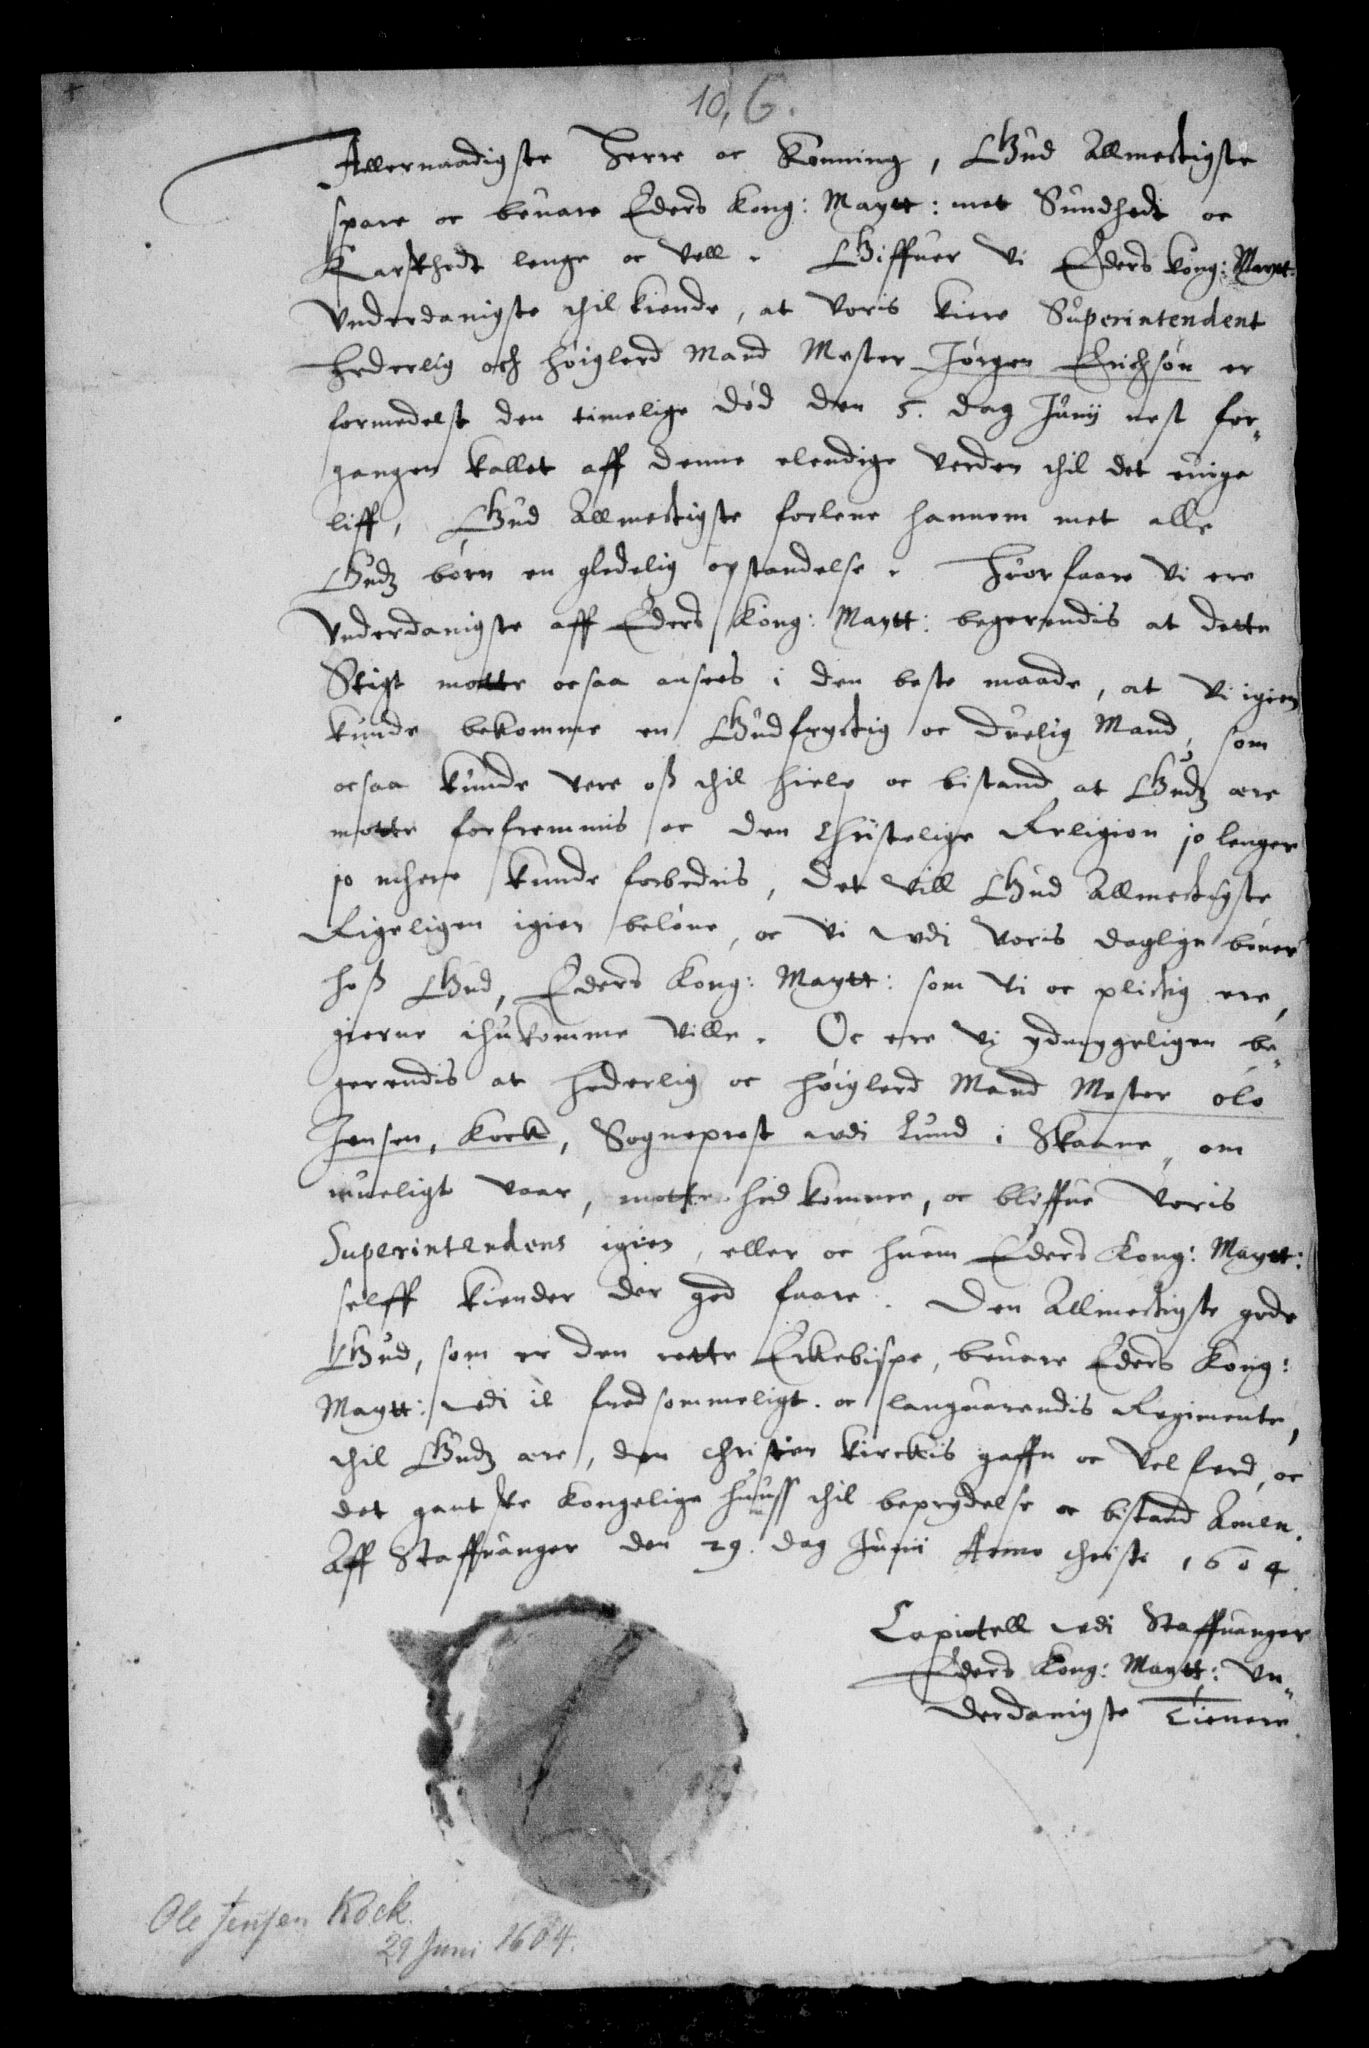 10, 6.
Allernaadigste Herre oc Konning, Gud Allmectigste
spare oc beuare Eders Kong: Maytt: met Sundhedt oc
Karskhedt lenge oc vell. Giffuer vi Eders kong: Maytt:
vnderdanigste thil kiende, at voris kiere Superintendent
hederlig och høiglerd Mand Mester Jørgen Erichsøn er
formedelst den timelige død den 5. dag Junij nest for„
gangen kallet aff denne elendige verden thil det euige
liff, Gud Allmectigste forlene hannem met alle
Gudz børn en gledelig opstandelse. Huorfaare vi ere
vnderdanigste aff Eders Kong: Maytt: begerendis at dette
Stigt motte ocsaa ansees i den beste maade, at vi igien
kunde bekomme en Gudfryctig oc duelig Mand, som
ocsaa kunde vere oß thil hielp oc bistand at Gudz ære
motte forfremmis oc den Christelige Religion jo lenger
jo mhere kunde forbedris, det vill Gud Allmectigste
Rigeligen igien beløne, oc vi udi voris daglige bøner
hoß Gud, Eders Kong: Maytt: som vi oc plictig ere,
gierne ihukomme ville. Oc ere vi ydmygeligen be„
gerendis at hederlig oc høiglerd Mand Mester Ole
Jensen, Kock, Sogneprest udi Lund i Skaane, om
mueligt vaar, motte hid komme, oc bliffue voris
Superintendens igien, eller oc huem Eders Kong: Maytt:
selff kiender der god faare. Den Allmectigste gode
Gud, som er den rette Erkebispe, beuare Eders Kong:
Maytt: udi it fredsommeligt oc languarendis Regimente,
thil Gudz ære, den christen kirckis gaffn oc velferd, oc
det gantske Kongelige huuss thil beprydelse oc bistand Amen.
Aff Staffuanger den 29. dag Junii Anno christi 1604
Capitell udi Staffuanger
Eders Kong: Maytt: vn„
derdanigste Tienere
Ole Jensen Kock.
29 Juni 1604.